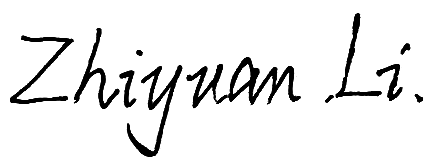 Zhiyuan Li.